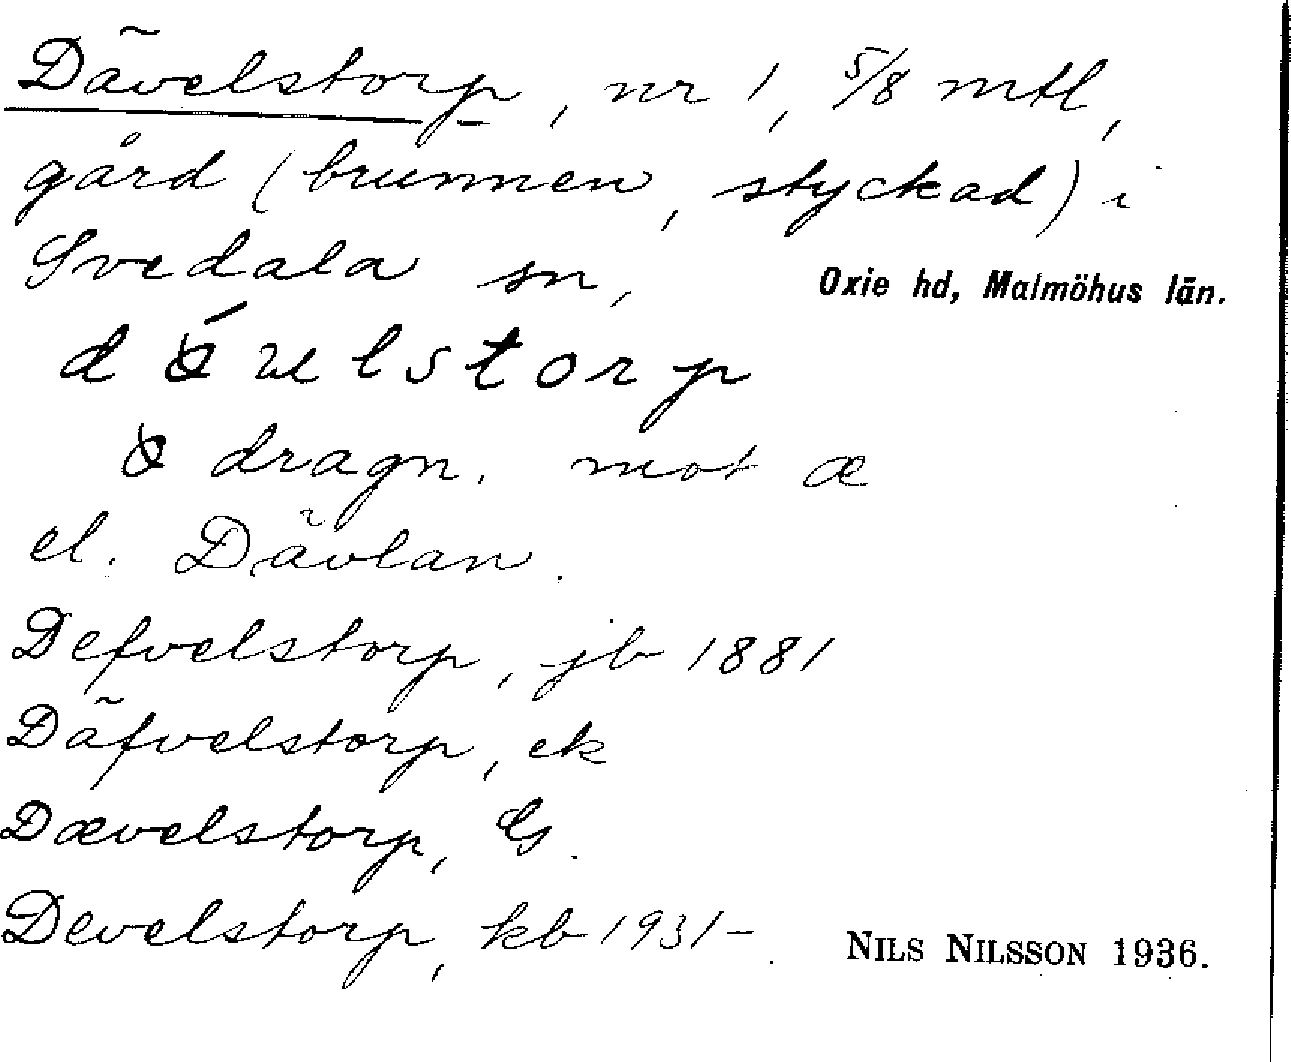 Dävelstorp, nr 1, 5/8 mtl,
gård (brunnen, styckad) i
Svedala sn, Oxie hd, Malmöhus län.
velstorp
dragn. mot æ
el. Dävlan.
Defvelstorp, jb 1881
Däfvelstorp, ek
Dævelstorp, G.
Devestorp, kb 1931– NILS NILSSON 1936.